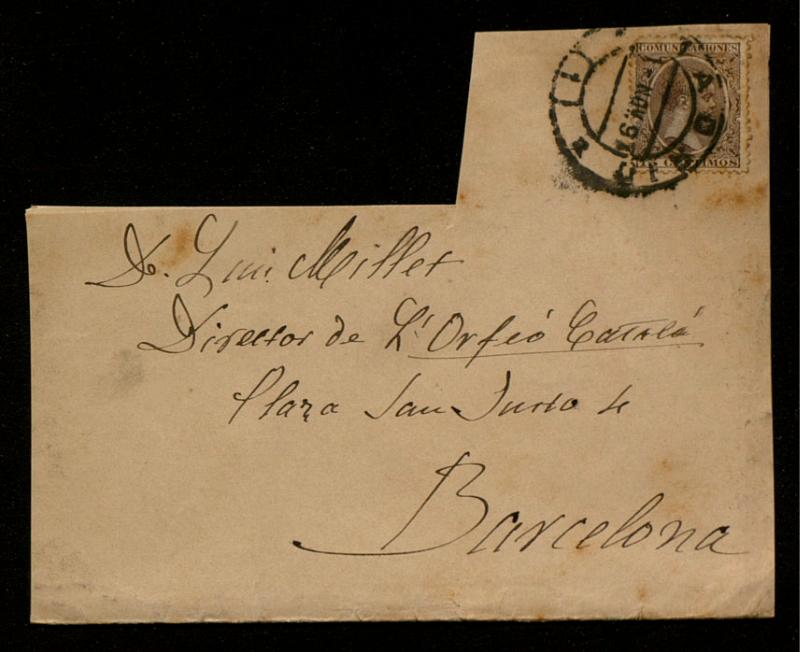 COMUNICACIONES
16 NOV 9
CENTIMOS
D. Luis Millet
Director de L'Orfeó Catalá
Plaza San Justo 4
Barcelona